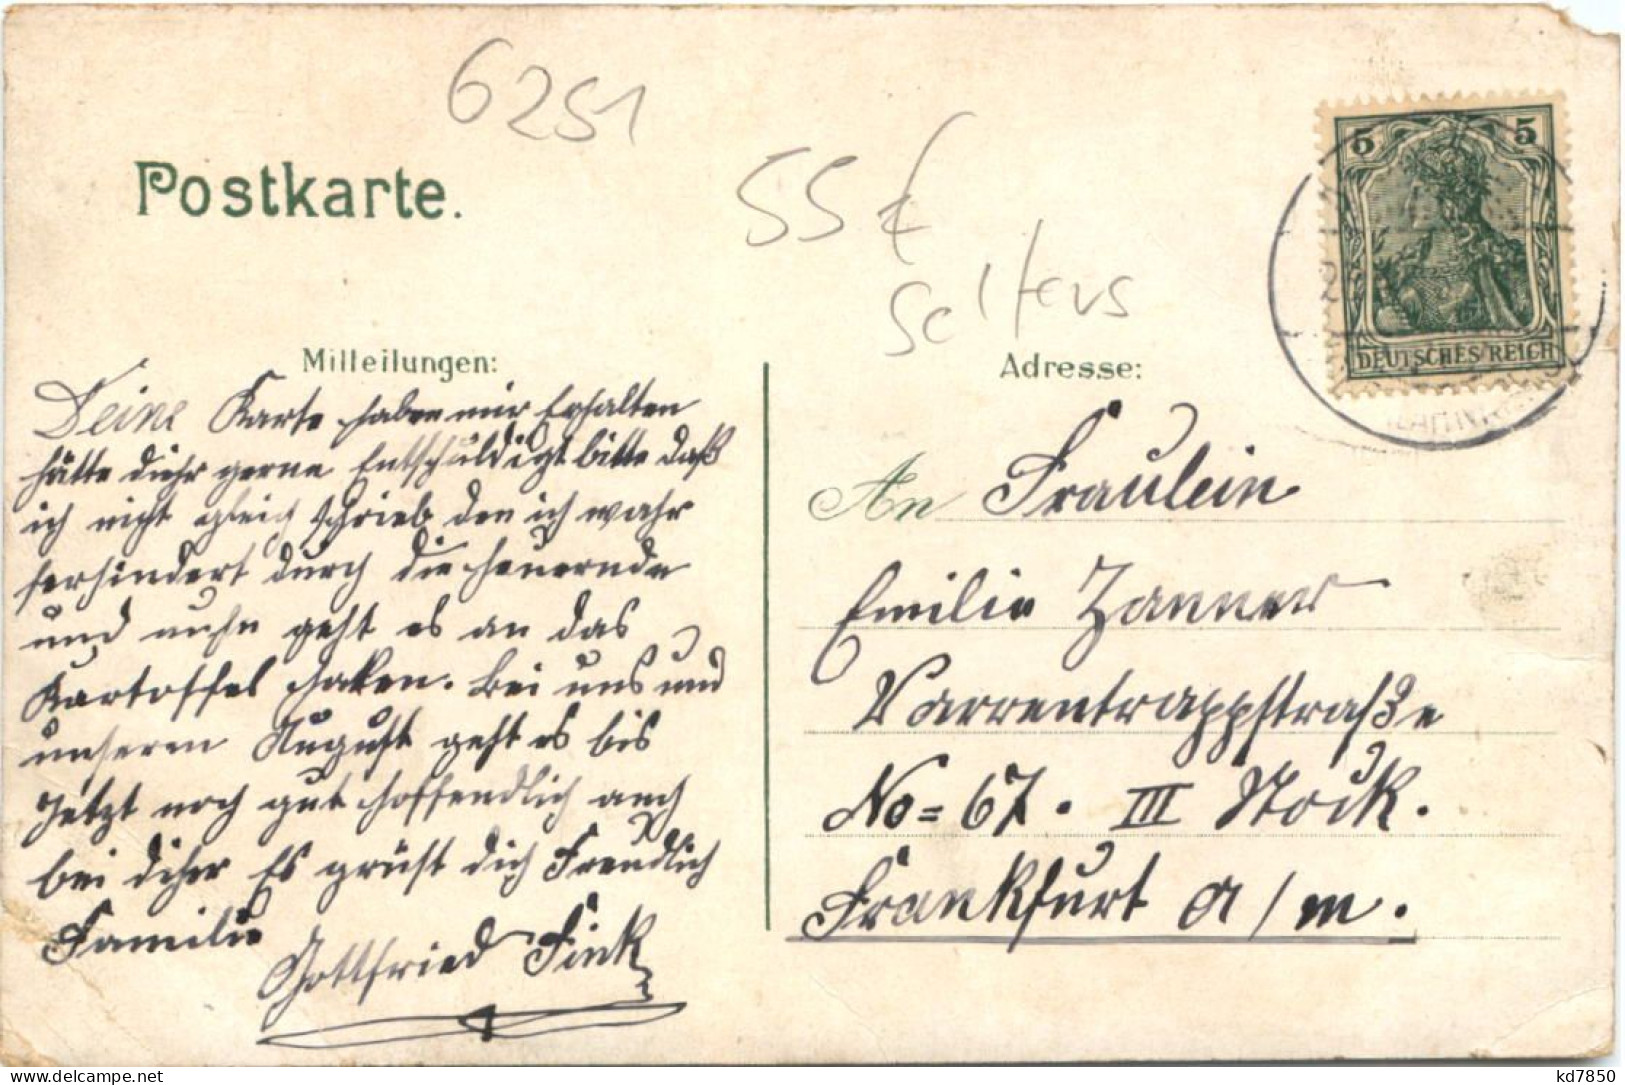 6251
55€
Selters
Postkarte.
5 5
DEUTSCHES REICH
Mitteilungen:
Deine Karte haben wir Erhalten
hätte diehr gerne Entschuldigt bitte daß
ich nicht gleich schrieb den ich wahr
ferhindert durch die heuernde
und nuhn geht es an das
Kartoffel haken. Bei uns und
unseren August geht es bis
Jetzt noch gut hoffendlich auch
bei diher Es grüst dich Freudlich
Familie
Gottfried Fink
Adresse:
An Fraulein
Emilie Zanner
Varrentrappstraße
No = 67. III Stock.
Frankfurt a/m.
delcampe.net
kd7850